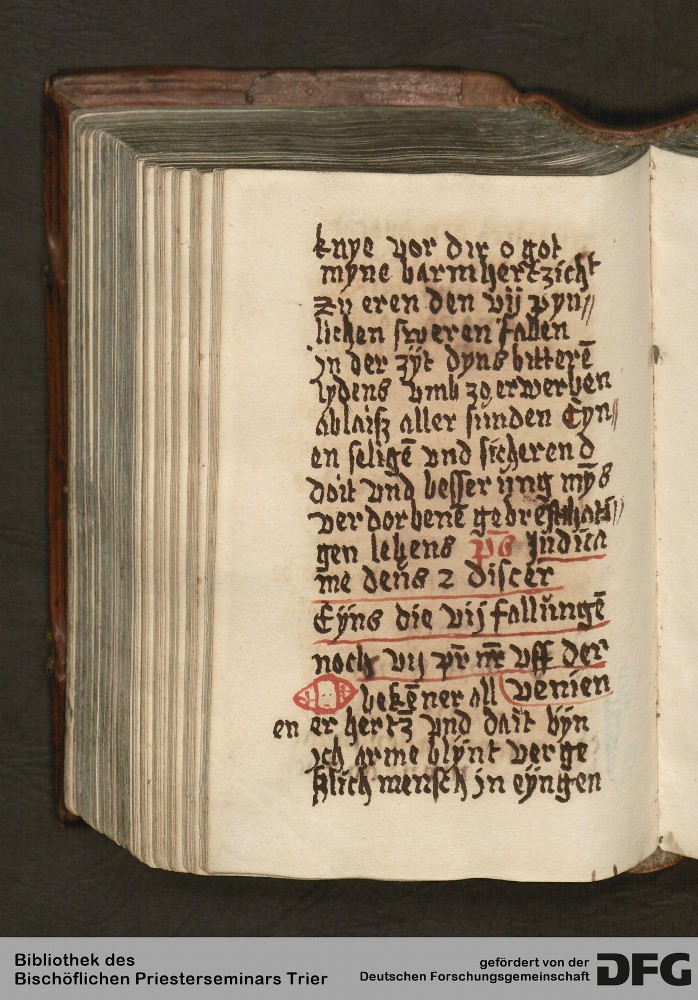 knye vor dir o got
myne barmhertzicht
zu eren den vij pyn⸗
lichen sweren fallen
in der zÿt dyns bitterē
lydens vmb zo erwerben
ablaisz aller sunden Eyn⸗
en seligē vnd sicheren
doit vnd besserung mȳs
verdorbenē gebresthaffti⸗
gen lebens ps̄ Judica
me deus 2 discer
Eyns die vij fallungē
noch vij pr̄ nr̄ vff der
O bekēner all venien
en er hertz vnd dait byn
ich arme blynt verge
slich mensch in eyngen
Bibliothek des
Bischöflichen Priesterseminars Trier
gefördert von der
Deutschen Forschungsgemeinschaft
DFG